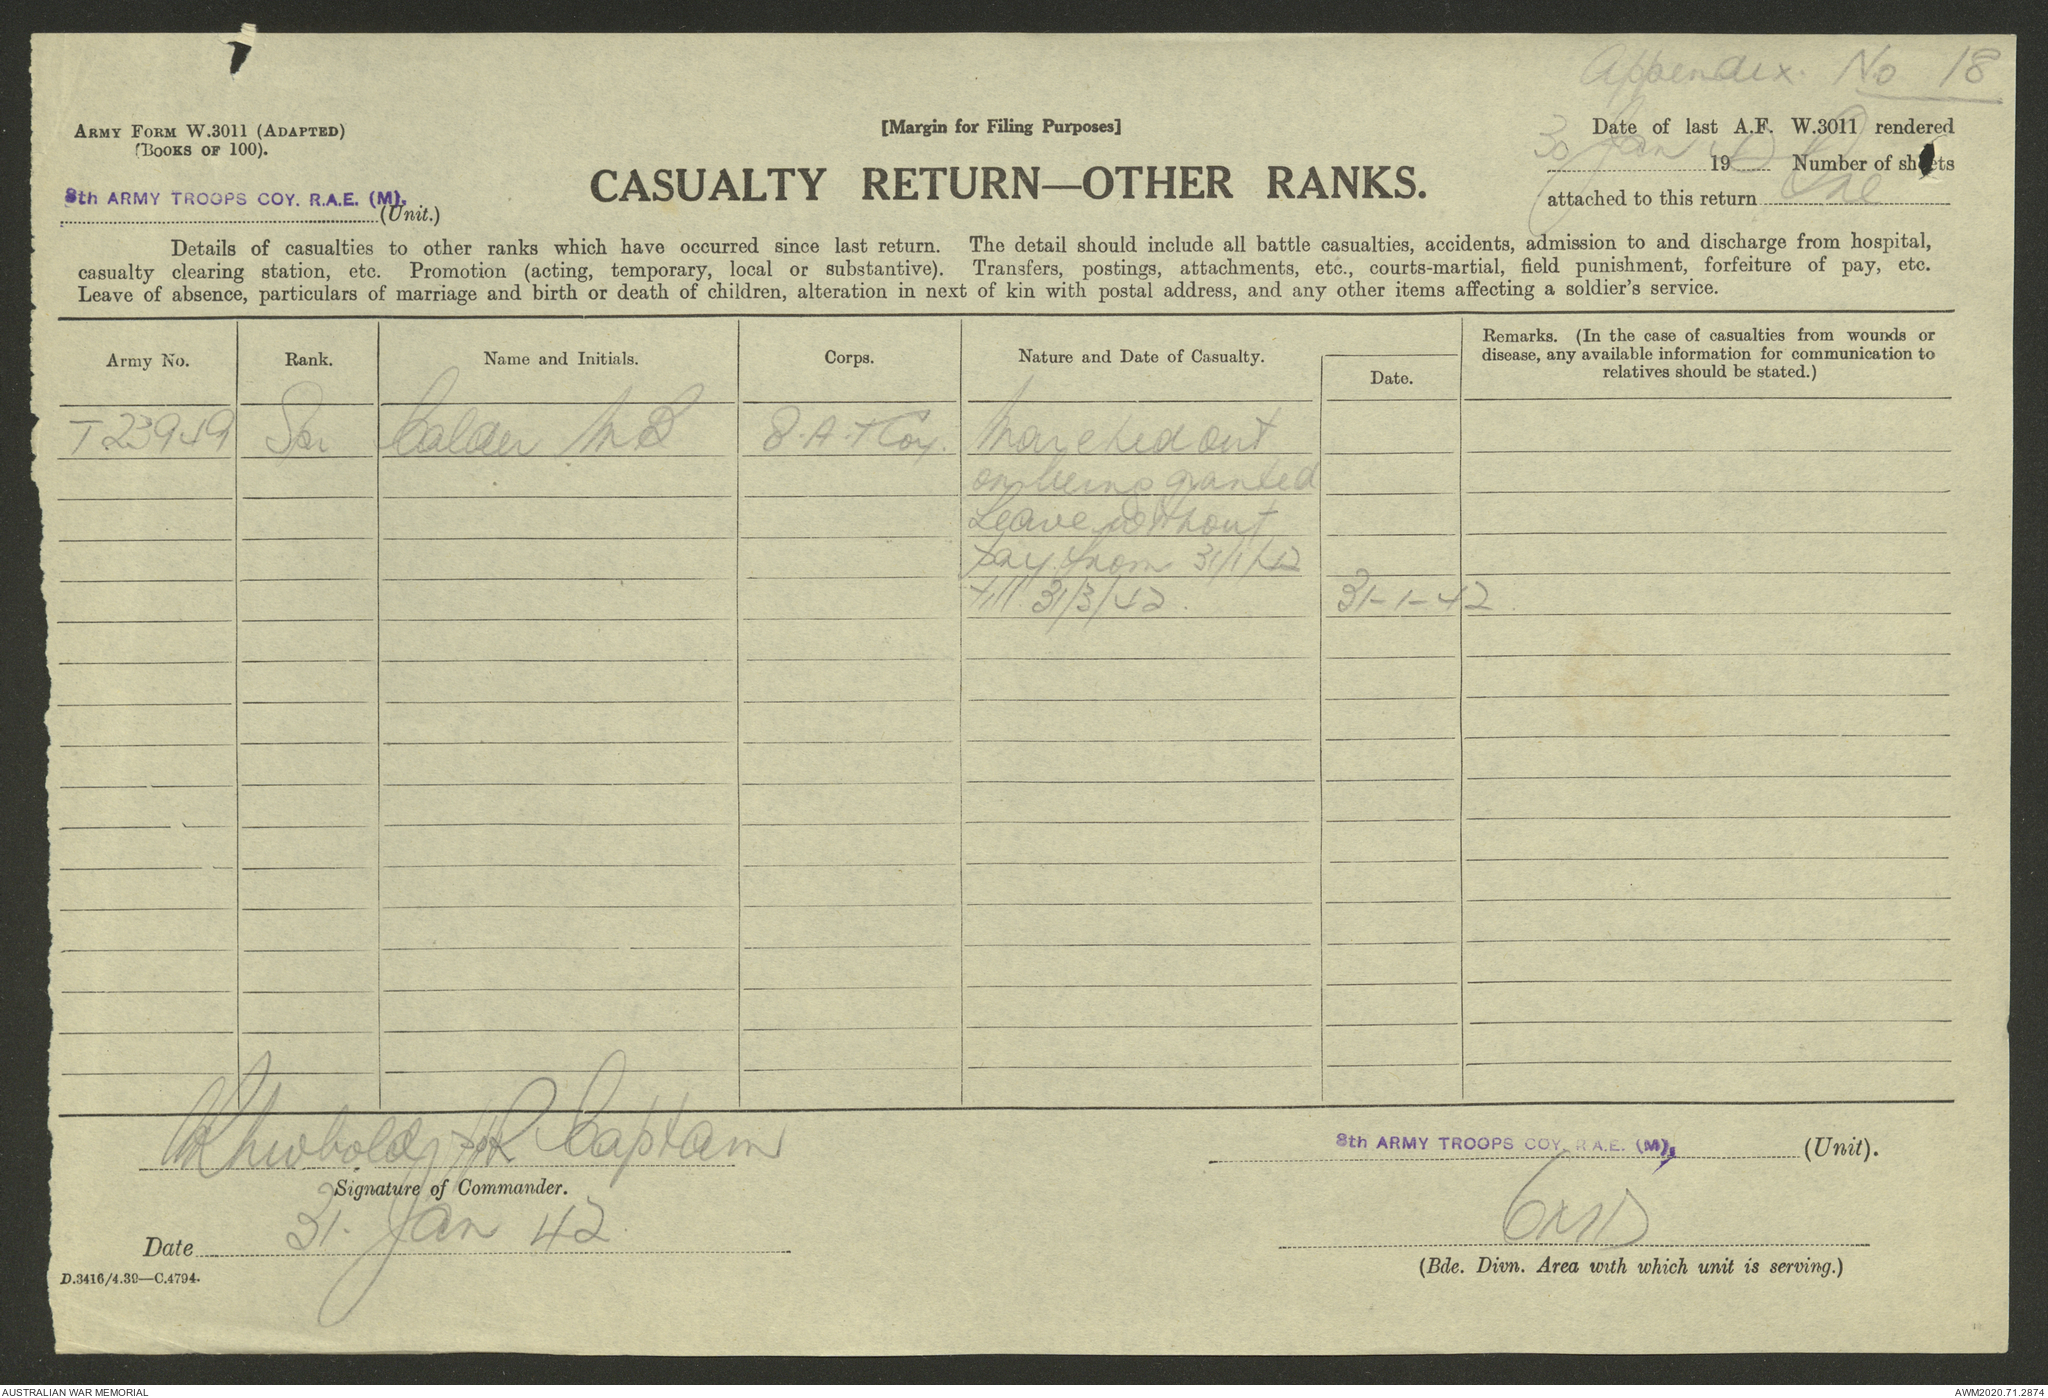 Appendix. No 18
ARMY FORM W.3011 (ADAPTED)
(BOOKS OF 100).
[Margin for Filing Purposes]
Date of last A.F. W.3011 rendered
30 Jan 1942 Number of sheets
attached to this return One
8th ARMY TROOPS COY. R.A.E. (M),
(Unit.)
CASUALTY RETURN—OTHER RANKS.
Details of casualties to other ranks which have occurred since last return. The detail should include all battle casualties, accidents, admission to and discharge from hospital,
casualty clearing station, etc. Promotion (acting, temporary, local or substantive). Transfers, postings, attachments, etc., courts-martial, field punishment, forfeiture of pay, etc.
Leave of absence, particulars of marriage and birth or death of children, alteration in next of kin with postal address, and any other items affecting a soldier's service.
Army No. Rank. Name and Initials. Corps. Nature and Date of Casualty. Date. Remarks. (In the case of casualties from wounds or
disease, any available information for communication to
relatives should be stated.)
T23949 Spr Calder M B 8.A.T Coy. Marched out
on being granted
Leave without
pay from 31/1/42
till 31/3/42. 31-1-42
Captain
Signature of Commander.
8th ARMY TROOPS COY. R.A.E. (M), (Unit).
Date 31. Jan 42
6MD
(Bde. Divn. Area with which unit is serving.)
D.3416/4.39—C.4794.
AUSTRALIAN WAR MEMORIAL
AWM2020.71.2874